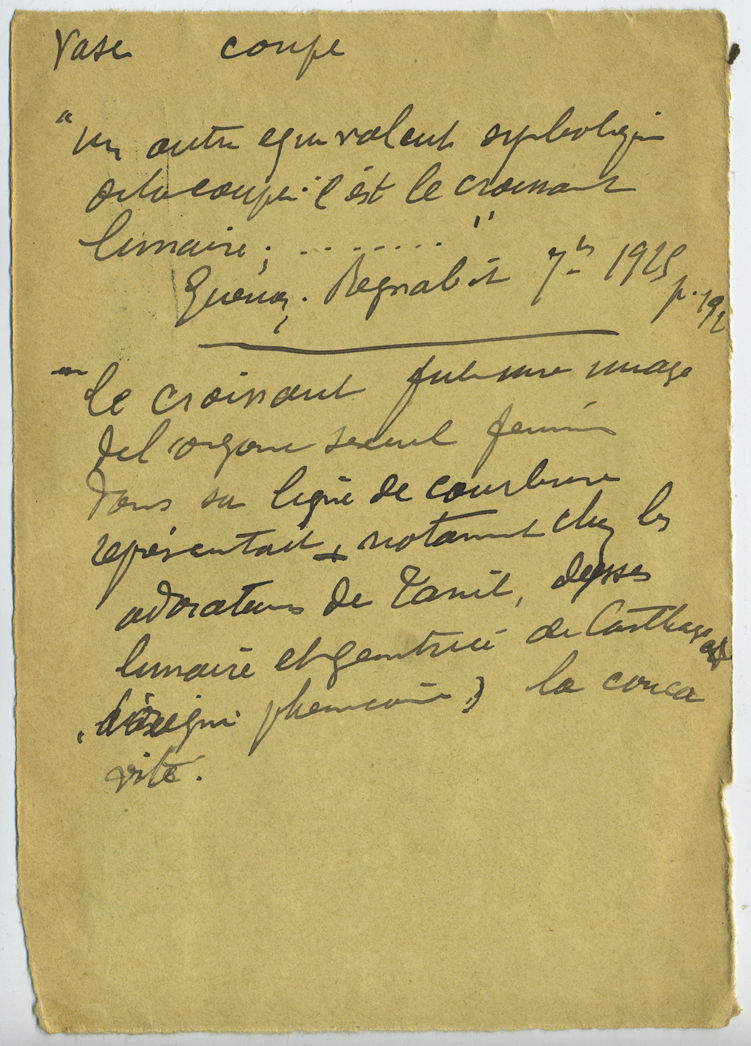 Vase coupe
"Un autre equivalent symbolique
de la coupe : c'est le croissant
lunaire ; ........ "
Guenon. Regnabit 7bre 1925 p. 192
Le croissant fut une image
del organe sexuel feminin
dans sa ligne de courbure
représentait + notamment chez les
adorateurs de Tanit, deesse
lunaire et genitrice de Carthage
phenicienne) la conca
vité.